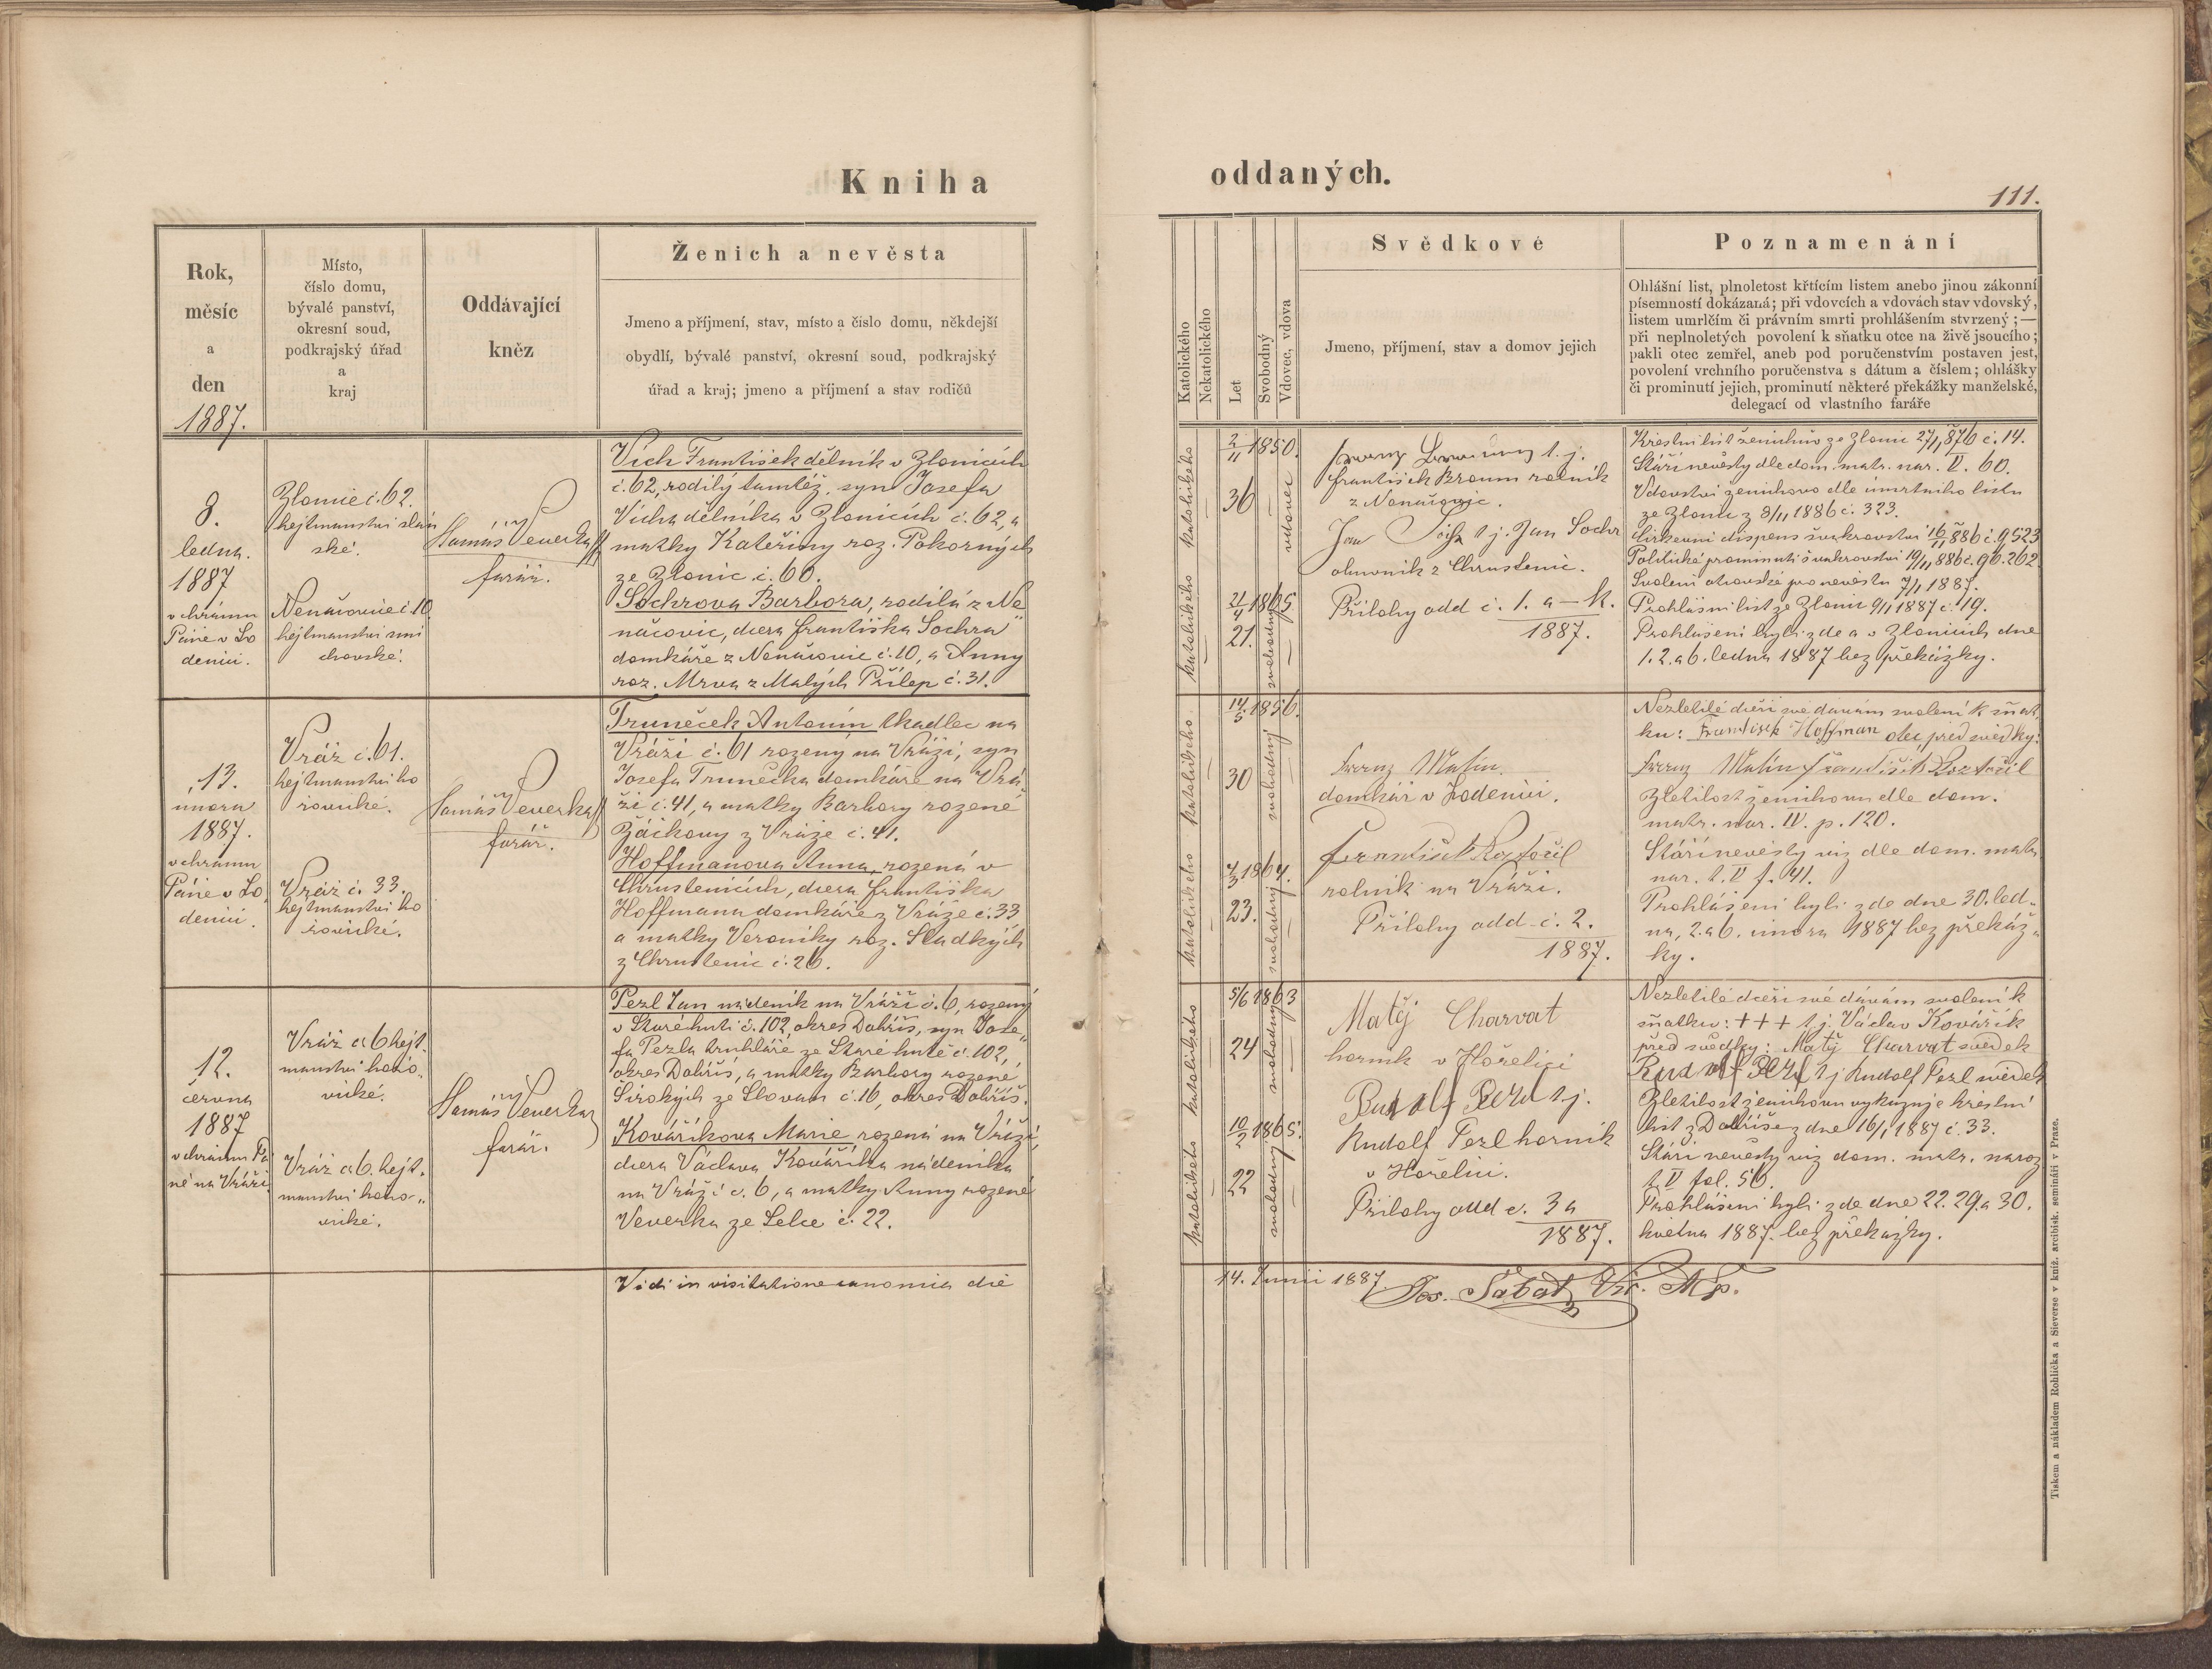 Kniha
oddaných.
111.
Rok,
měsíc
a
den
1887.
Místo,
číslo domu,
bývalé panství,
okresní soud,
podkrajský úřad
a
kraj
Oddávající
kněz
Ženich a nevěsta
Jmeno a příjmení, stav, místo a čislo domu, někdejší
obydlí, bývalé panství, okresní soud, podkrajský
úřad a kraj; jmeno a příjmení a stav rodičů
Katolického
Nekatolického
Let
Svobodný
Vdovec, vdova
Svědkové
Jmeno, příjmení, stav a domov jejich
Poznamenání
Ohlášní list, plnoletost křtícím listem anebo jinou zákonní
písemností dokázaná; při vdovcích a vdovách stav vdovský,
listem umrlčím či právním smrti prohlášením stvrzený; —
při neplnoletých povolení k sňatku otce na živě jsoucího;
pakli otec zemřel, aneb pod poručenstvím postaven jest,
povolení vrchního poručenstva s dátum a číslem; ohlášky
či prominutí jejich, prominutí některé překážky manželské,
delegací od vlastního faráře
8.
ledna.
1887
v chrámu
Páně v Lo
denici.
Zlonice č. 62.
hejtmanství slán
ské.
Nenačovice č. 10
hejtmanství smi
chovské.
Tomáš Veverka
farář.
Vích František dělník v Zlonicích
č. 62, rodilý tamtéž, syn Josefa
Vícha dělníka v Zlonicích č. 62, a
matky Kateřiny roz. Pokorných
ze Zlonic č. 60.
Sochrova Barbora, rodilá z Ne
načovic, dcera Františka Sochra
domkáře z Nenačovic č. 10, a Anny
roz. Mrva z Malých Přílep č. 31.
katolického
katolického
2/11 1850.
36
vdovec
21/4 1865
21.
svobodný
František Braum rolník
z Nenačovic.
Jan Sochr t. j. Jan Sochr
obuvník z Chrustenic.
Přílohy odd č. 1. a — k.
1887.
Křestní list ženichův ze Zlonic 27/1, 876 č. 14.
Stáří nevěsty dle dom. matr. nar. V. 60.
Vdovství ženichovo dle úmrtního listu
ze Zlonic z 8/11 1886 č. 323.
Církevní dispens švakrovství 16/11 886 č. 9523
Politické prominutí švakrovství 19/11 886 č. 96.262
Svolení otcovské pro nevěstu 7/1 1887.
Prohlašní list ze Zlonic 9/1 1887 č. 19.
Prohlášeni byli zde a v Zlonicích dne
1. 2. a 6. ledna 1887 bez překážky.
13.
února
1887.
v chrámu
Páně v Lo
denici.
Vráž č. 61.
hejtmanství ho
řovické.
Vráž č. 33.
hejtmanství ho
řovické.
Tomáš Veverka
farář.
Truneček Antonín tkadlec na
Vráži č. 61 rozený na Vráži, syn
Josefa Trunečka domkáře na Vrá
ži č. 41, a matky Barbory rozené
Žáčkovy z Vráže č. 41.
Hoffmanova Anna, rozená v
Chrustenicích, dcera Františka
Hoffmana domkáře z Vráže č. 33
a matky Veroniky roz. Sladkých
z Chrustenic č. 26.
katolického
katolického
14/5 1856.
30
svobodný
7/3 1864.
23.
svobodný
Franz Malín
domkář v Lodenici.
František Roztočil
rolník na Vráži.
Přílohy odd č. 2.
1887.
Nezletilé dceři své dávám svolení k sňat
ku: František Hoffman otec, před svědky:
Franz Malín František Roztočil
Zletilost ženichovu dle dom.
matr. nar. IV. p. 120.
Stáří nevěsty viz dle dom. matr.
nar. t. V f. 41.
Prohlášeni byli zde dne 30. led-
na, 2. a 6. února 1887 bez překáž-
ky.
12.
června
1887
v chrámu Pá
ně na Vráži
Vráž č. 6 hejt-
manství hořo-
vické.
Vráž č. 6. hejt-
manství hořo-
vické.
Tomáš Veverka
farář.
Pezl Jan nádeník na Vráži č. 6, rozený
v Staréhuti č. 102, okres Dobříš, syn Jose-
fa Pezla truhláře ze Staré hutě č. 102,
okres Dobříš, a matky Barbory rozené
Širokých ze Slovan č. 16, okres Dobříš.
Kováříkova Marie rozená na Vráži,
dcera Václava Kováříka nádeníka
na Vráži č. 6, a matky Anny rozené
Veverka ze Lelce č. 22.
katolického
katolického
5/6 1863
24
svobodný
10/2 1865.
22
svobodný
Matěj Charvat
horník v Hořelici
Rudolf Pezl t. j.
Rudolf Pezl horník
v Hořelici.
Přílohy odd č. 3 a
1887.
Nezletilé dceři své dávám svolení k
sňatku: +++ t. j. Václav Kovářík
před svědky: Matěj Charvat svědek
Rudolf Pezl t j Rudolf Pezl svědek
Zletilost ženichovu vykazuje křestní
list z Dobříše z dne 16/1 1887 č. 33.
Stáří nevěsty viz dom. matr. naroz
t. V fol. 56.
Prohlášeni byli zde dne 22. 29. a 30.
května 1887. bez překážky.
Vidi in visitatione canonica die
14. Junii 1887.
Tiskem a nákladem Rohlíčka a Sieverse v kníž. arcibisk. semináři v Praze.